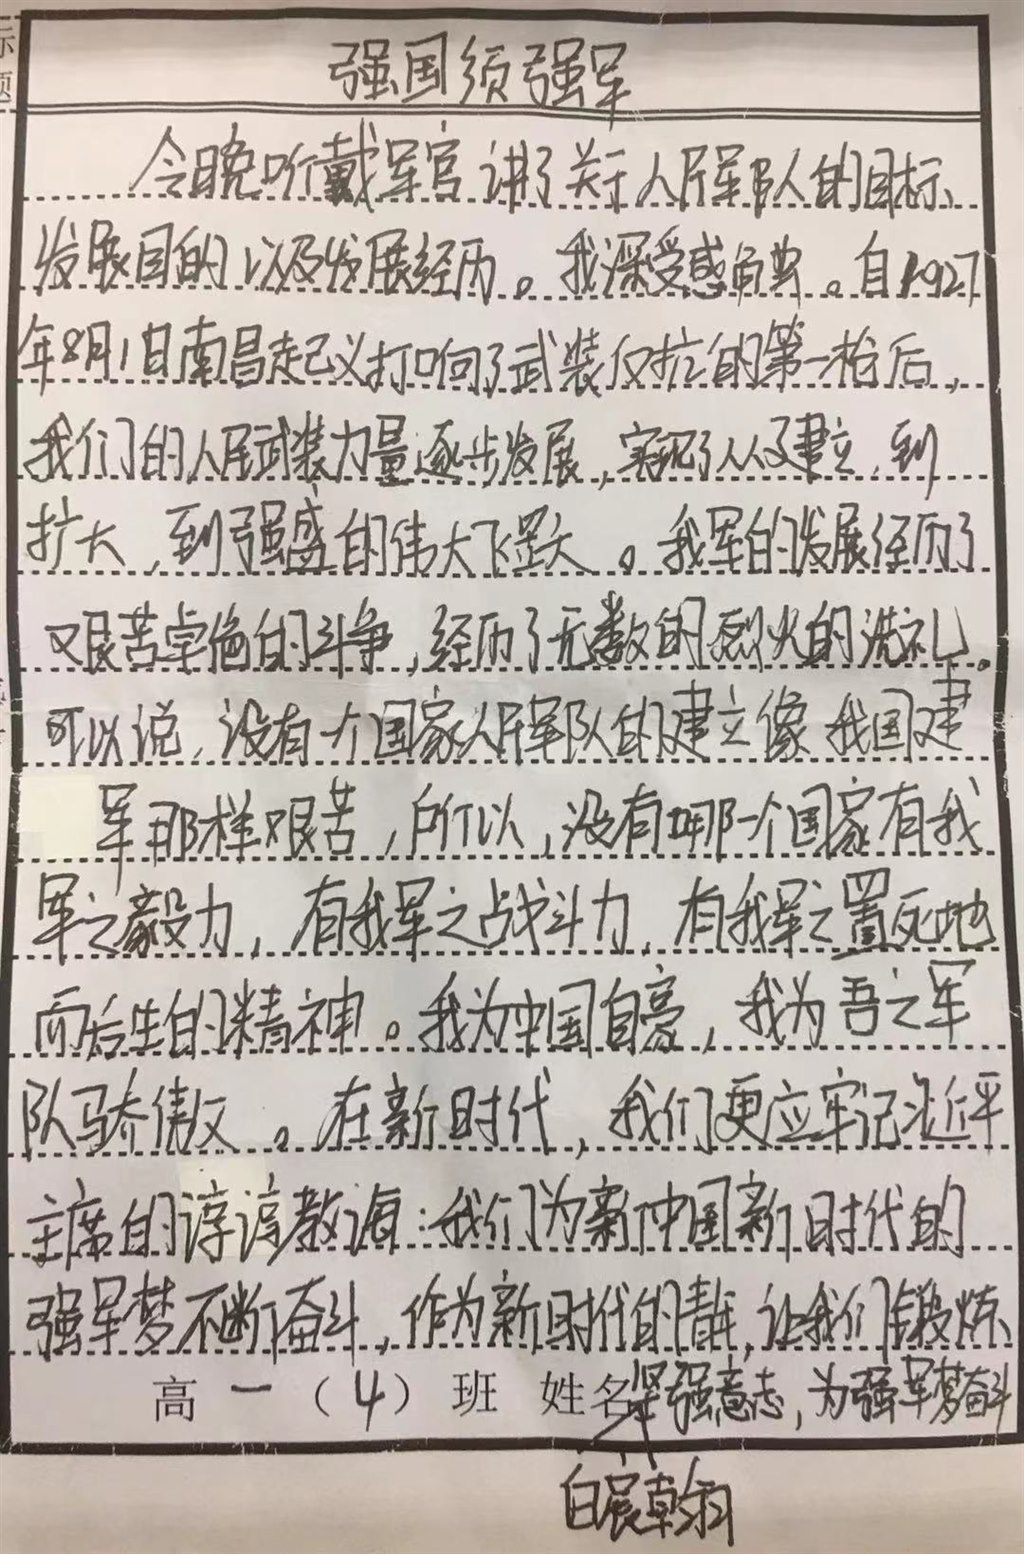 标
题
强国须强军
今晚听戴军官讲了关于人民军队的目标、
发展目的以及发展经历。我深受感触。自1927
年8月1日南昌起义打响了武装反抗的第一枪后，
我们的人民武装力量逐步发展，实现了从建立，到
扩大，到强盛的伟大飞跃。我军的发展经历了
艰苦卓绝的斗争，经历了无数的烈火的洗礼。
可以说，没有一个国家人民军队的建立像我国建
军那样艰苦，所以，没有哪一个国家有我
军之毅力，有我军之战斗力，有我军之置死地
而后生的精神。我为中国自豪，我为吾之军
队骄傲。在新时代，我们更应牢记习近平
主席的谆谆教诲：我们为新中国新时代的
强军梦不断奋斗，作为新时代的青年，让我们锻炼
高一（4）班 姓名 坚强意志，为强军梦奋斗
白展翰